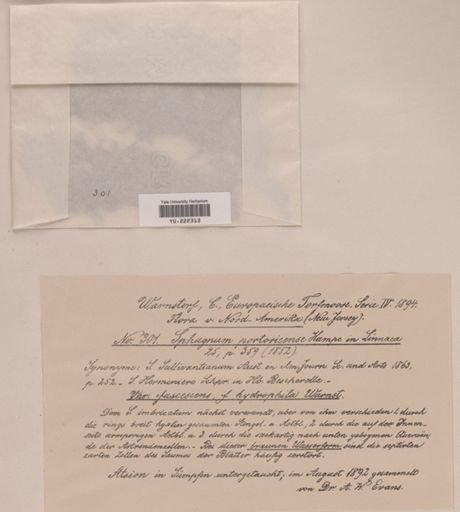 301
Yale University Herbarium
YU-222313
Warnstorf, C., Europaeische Torfmoose. Serie IV. 1894.
Flora v. Nord Amerika (New Jersey).
No. 301. Sphagnum portoricense Hampe in Linnaea
25, p. 359 (1852).
Synonyme: S. Sullivantianum Aust. in Am. Journ. Sc. and Arts 1863,
p. 252. S. Herminieri Schpr. in Hb. Bescherelle.
Var. fuscescens, f. hydrophila Warnst.
Dem S. imbricatum nächst verwandt, aber von ihm verschieden 1. durch
die rings breit hyalin gesäumten Stengel- u. Astbl., 2 durch die auf der Innen-
seite armporigen Astbl. u. 3 durch die nach unten gebogenen
der Astrindenzellen. Bei dieser braunen Wasserform sind die septirten
zarten Zellen des Saumes der Blätter häufig zerstört.
in Sümpfen untergetaucht, im August 1892 gesammelt
von Dr. A. W. Evans.